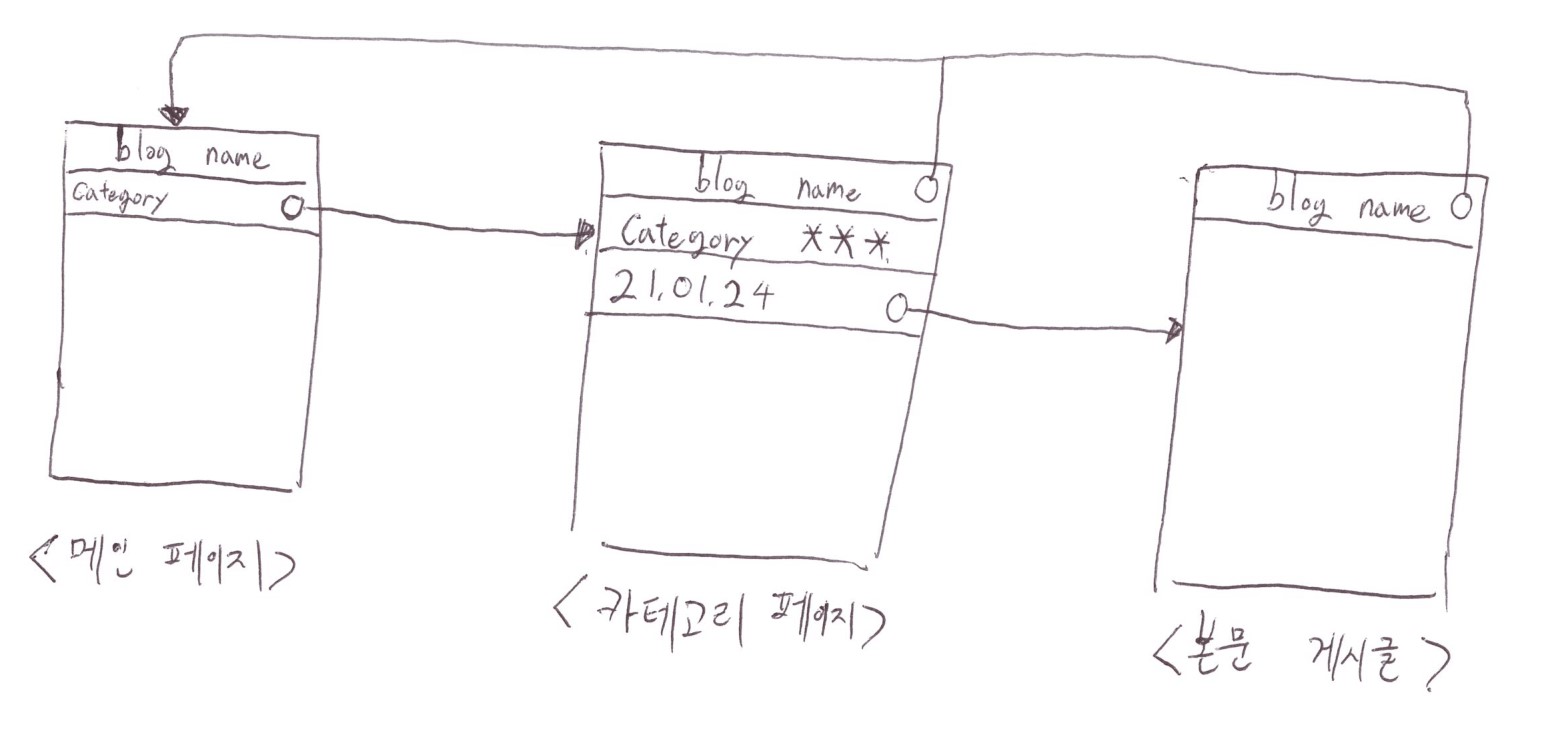 blog name
Category
<메인 페이지>
blog name
Category ***
21.01.24
<카테고리 페이지>
blog name
<본문 게시글>